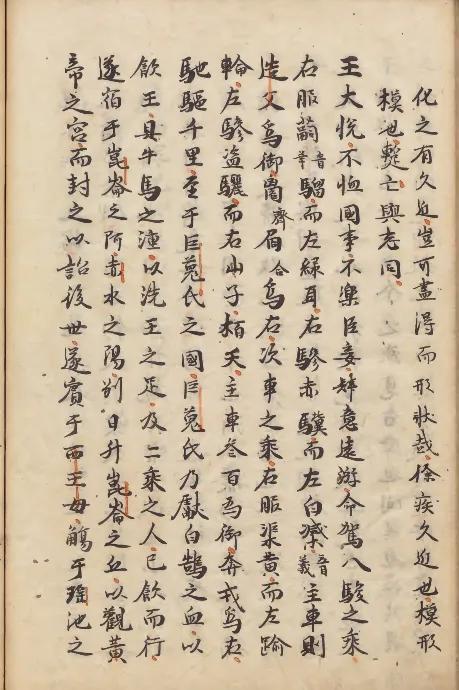 化之有久近豈可盡得而形狀哉徐疾久近也模形
模也蹔亡與老同
王大悅不恤國事不樂臣妾肆意遠游命駕八駿之乘
右服音華騮而左綠耳右驂赤驥而左白音義主車則
造父爲御齊合爲右次車之乘右服渠黃而左踰
輪左驂盜驪而右山子栢夭主車叄百爲御奔戎爲右
馳驅千里至于巨蒐氏之國巨蒐氏乃獻白鵠之血以
飲王具牛馬之湩以洗王之足及二乘之人已飲而行
遂宿于崑崙之阿赤水之陽別日升崑崙之丘以觀黃
帝之宮而封之以詒後世遂賓于西王母觴于瑤池之